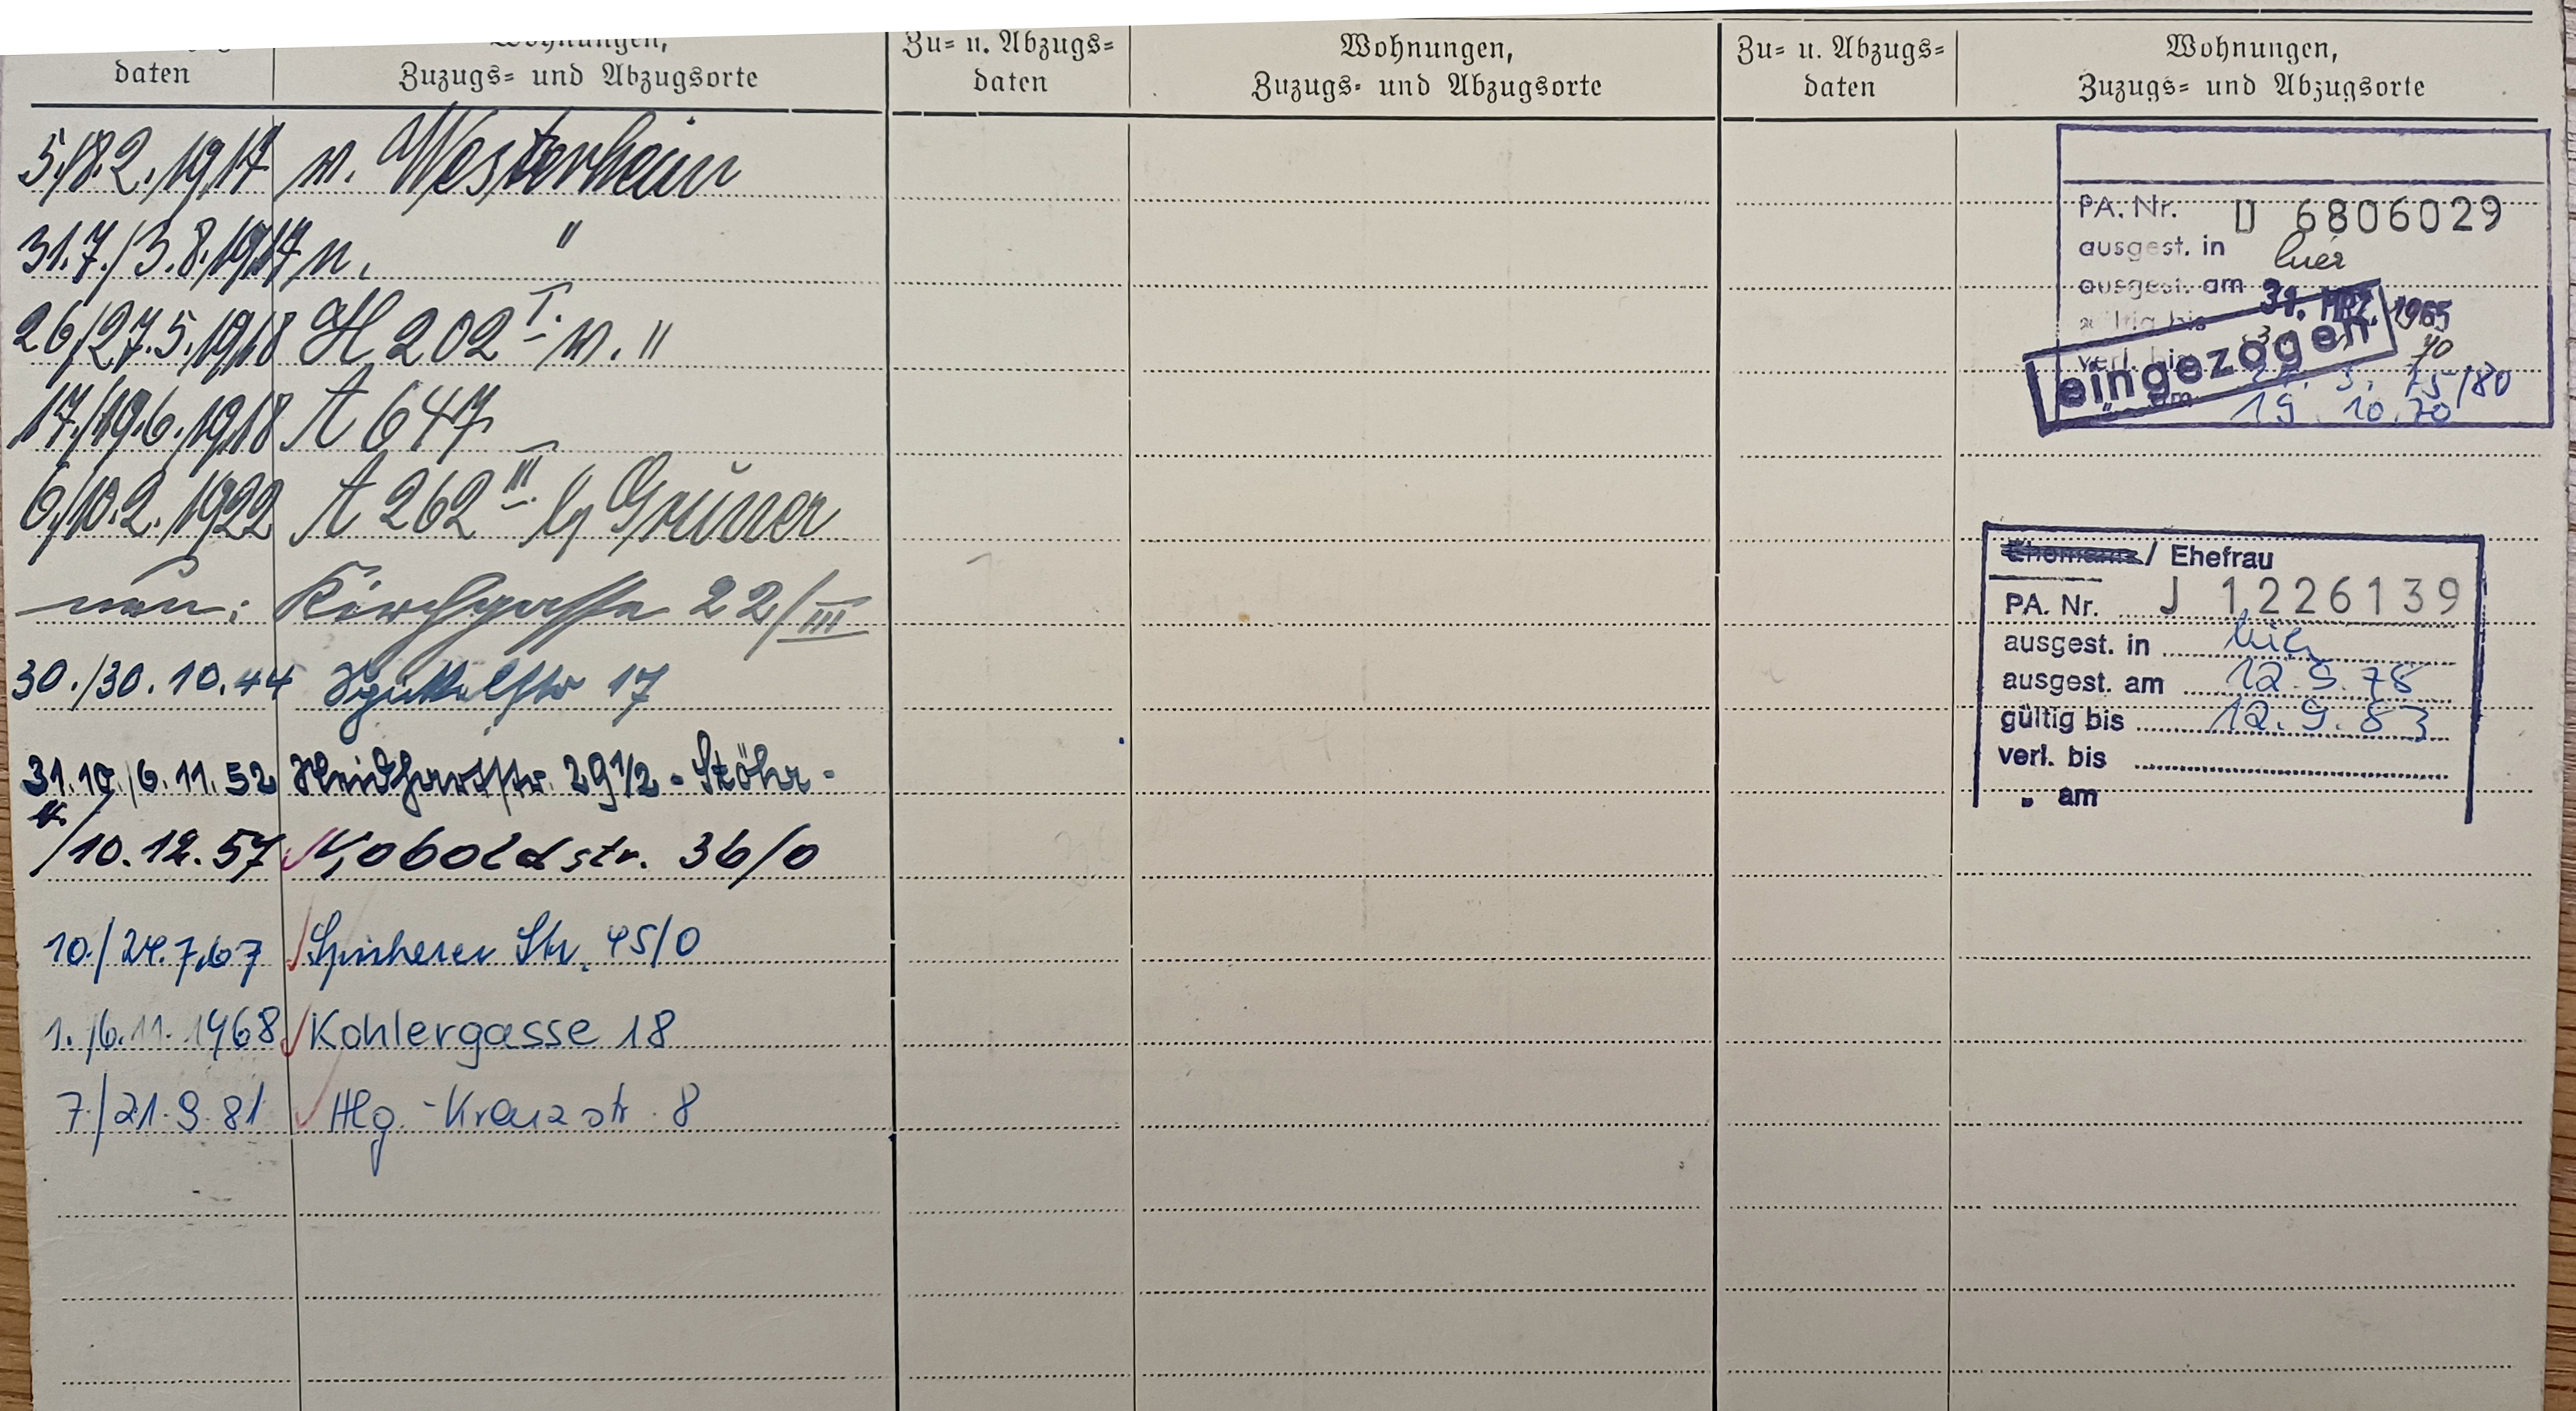 daten
Wohnungen,
Zuzugs= und Abzugsorte
Zu= u. Abzugs=
daten
Wohnungen,
Zuzugs= und Abzugsorte
Zu= u. Abzugs=
daten
Wohnungen,
Zuzugs= und Abzugsorte
5./8.2.1917 v. Westerheim
31.7./3.8.1917 n. "
26/27.5.1918 H 202 I. v. "
17./19.6.1918 A 647
6./10.2.1922 A 262 III. b/ Grüner
neu: Kirchgasse 22/III
30./30.10.44 17
31.10./6.11.52 Neidhartstr. 29 1/2 - Stöhr -
/10.12.57 Koboldstr. 36/0
10./24.7.67 Spicherer Str. 45/0
1./6.11.1968 Kohlergasse 18
7./21.9.81 Hlg.-Kreuzstr. 8
PA. Nr. D 6806029
ausgest. in hier
ausgest. am 31. MRZ. 1965
gültig bis 70
verl. bis 75/80
" am 19.10.70
eingezogen
Ehemann / Ehefrau
PA. Nr. J 1226139
ausgest. in hier
ausgest. am 12.9.78
gültig bis 12.9.83
verl. bis
" am